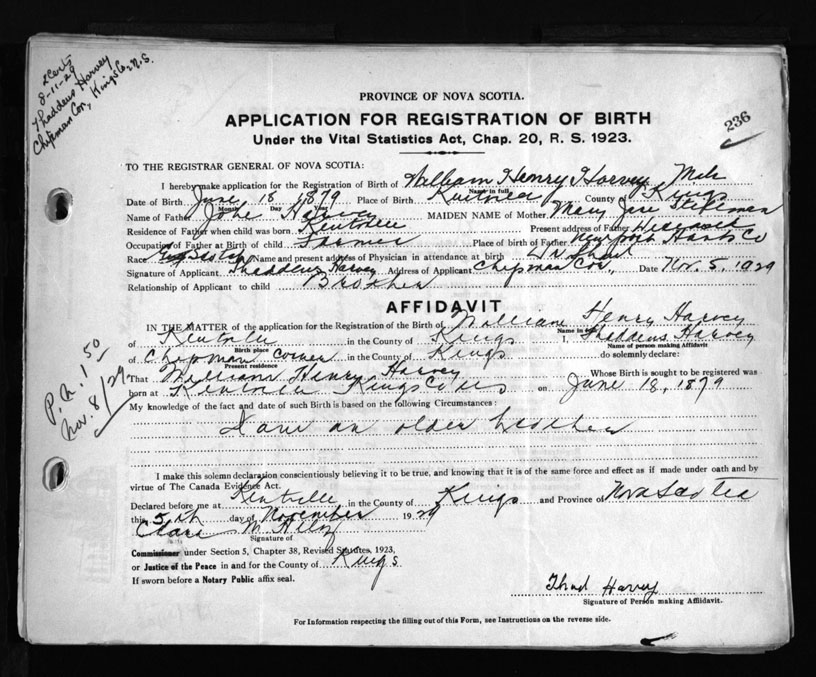 8-11-29
Thaddeus Harvey
Chipman Cor, Kings Co, N.S.
236
PROVINCE OF NOVA SCOTIA.
APPLICATION FOR REGISTRATION OF BIRTH
Under the Vital Statistics Act, Chap. 20, R. S. 1923.
TO THE REGISTRAR GENERAL OF NOVA SCOTIA:
I hereby make application for the Registration of Birth of William Henry Harvey Male
Name in full
Date of Birth June 18 1879 Place of Birth Kentville County of Kings
Month Day Year
Name of Father John Harvey MAIDEN NAME of Mother Mary Jane
Residence of Father when child was born Kentville Present address of Father Deceased
Occupation of Father at Birth of child Farmer Place of birth of Father Newport Hants Co
Race Name and present address of Physician in attendance at birth
Signature of Applicant Thaddeus Harvey Address of Applicant Chipman Cor., Date Nov. 5, 1929
Relationship of Applicant to child Brother
AFFIDAVIT
IN THE MATTER of the application for the Registration of the Birth of William Henry Harvey
Name in full
of Kentville in the County of Kings I, Thaddeus Harvey
Birth place Name of person making Affidavit
of Chipman Corner in the County of Kings do solemnly declare:
Present residence
That William Henry Harvey Whose Birth is sought to be registered was
born at Kentville Kings Co NS on June 18, 1879
My knowledge of the fact and date of such Birth is based on the following Circumstances:
I am an older brother
P.A. 1.50
Nov. 8/29
I make this solemn declaration conscientiously believing it to be true, and knowing that it is of the same force and effect as if made under oath and by
virtue of The Canada Evidence Act.
Declared before me at Kentville in the County of Kings and Province of Nova Scotia
this 5th day of November 1929
Signature of
Commissioner under Section 5, Chapter 38, Revised Statutes, 1923,
or Justice of the Peace in and for the County of Kings
If sworn before a Notary Public affix seal.
Thad Harvey
Signature of Person making Affidavit.
For Information respecting the filling out of this Form, see Instructions on the reverse side.